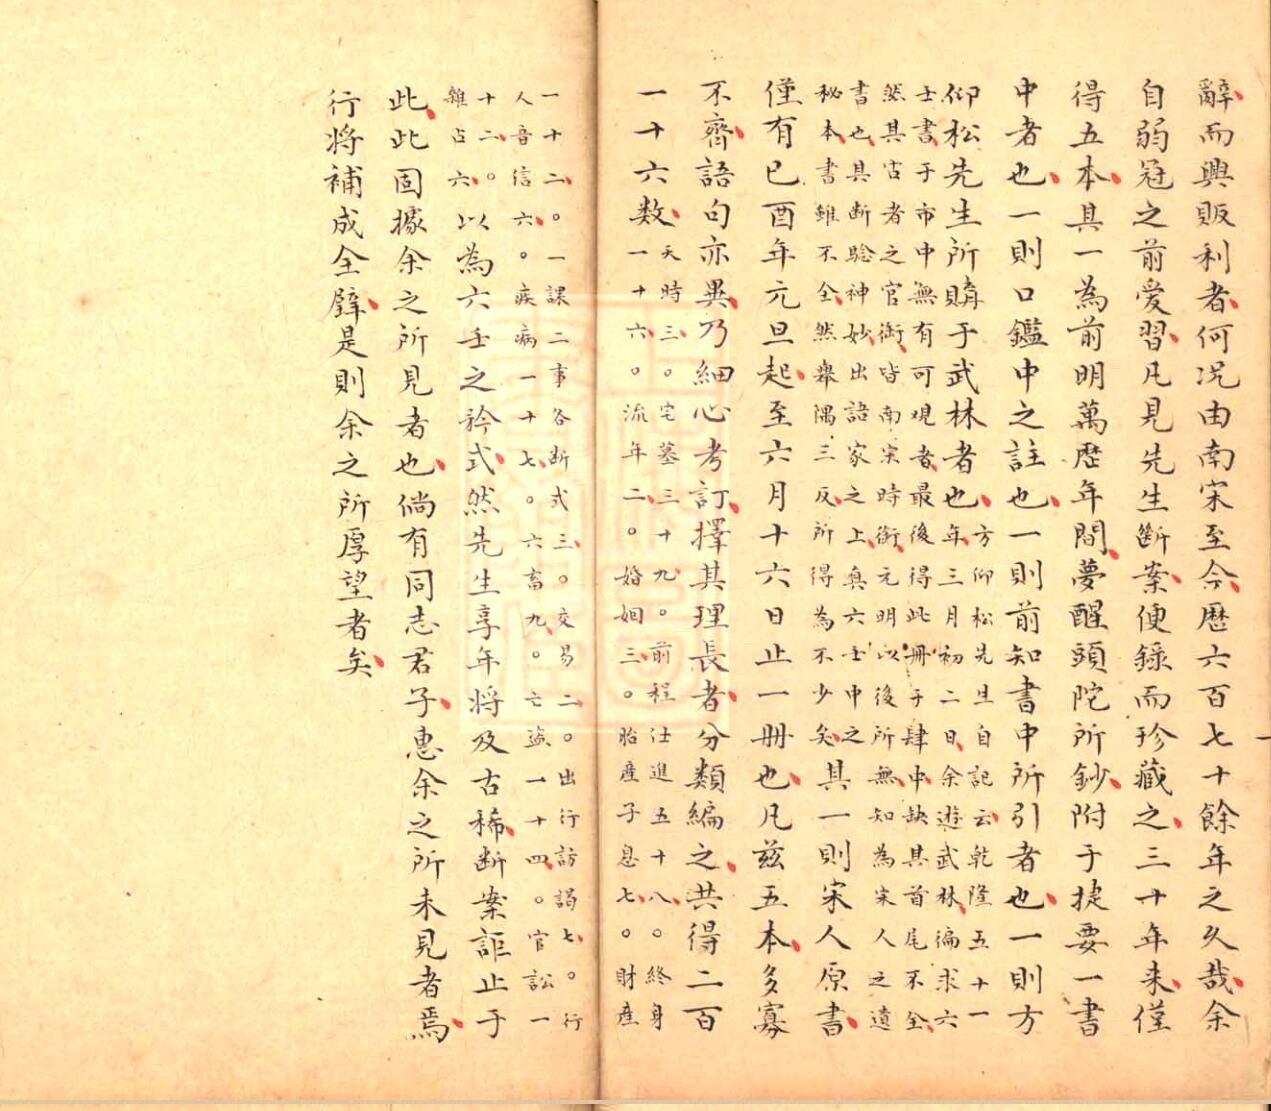 辭而興販利者何况由南宋至今歷六百七十餘年之久哉余
自弱冠之前愛習凡見先生斷案便錄而珍藏之三十年来僅
得五本其一為前明萬歷年間夢醒頭陀所鈔附于捷要一書
中者也一則口鑑中之註也一則前知書中所引者也一則方
仰松先生所購于武林者也
方仰松先生自記云乾隆五十一
年三月初二日余遊武林徧求六
壬書于市中無有可覌者最後得此册于肆中缺其首尾不全
然其古者之官銜皆南宋時銜元明以後所無知為宋人之遺
書也其断驗神妙出諸家之上真六壬中之
秘本書雖不全然舉隅三反所得為不少矣
其一則宋人原書
僅有已酉年元旦起至六月十六日止一册也凡兹五本多寡
不齊語句亦異乃細心考訂擇其理長者分類編之共得二百
一十六数
天時三。宅墓三十九。前程仕進五十八。終身
一十六。流年二。婚姻三。胎產子息七。財產
一十二。一課二事各断式三。交易二。出行訪謁七。行
人音信六。疾病一十七。六畜九。亡盗一十四。官訟一
十二。
雜占六
以為六壬之矜式然先生享年将及古稀断案詎止于
此此固據余之所見者也倘有同志君子惠余之所未見者焉
行将補成全璧是則余之所厚望者矣